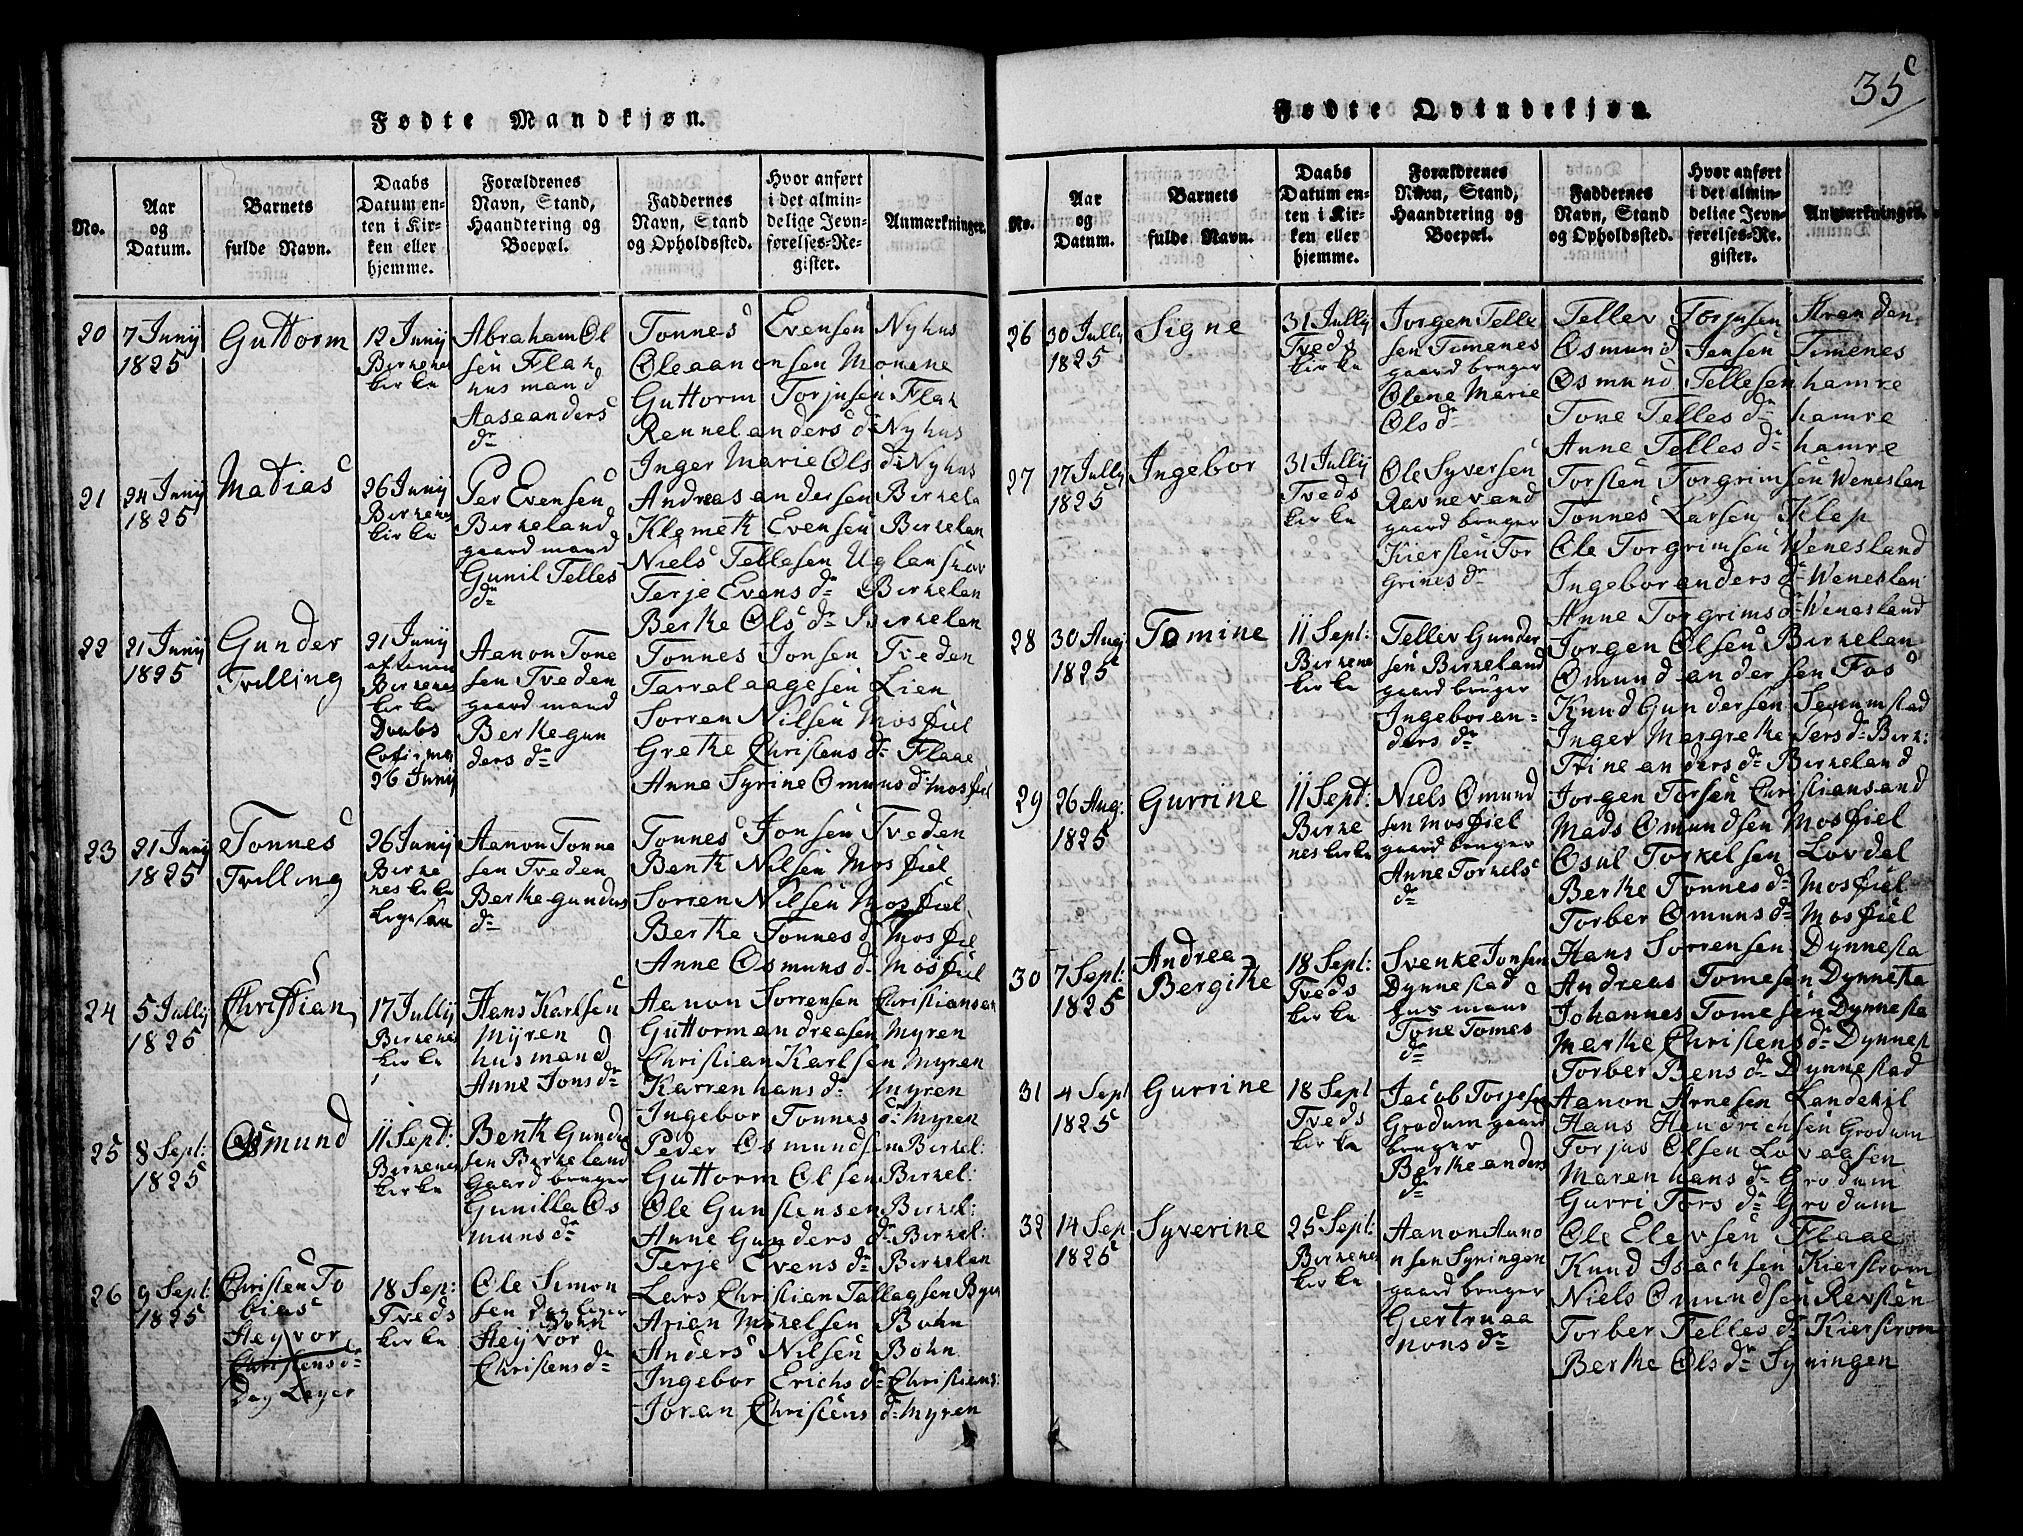 35
Fødte Mandkjøn.
No.
Aar
og
Datum.
Barnets
fulde Navn.
Daabs
Datum en-
ten i Kir-
ken eller
hjemme.
Forældrenes
Navn, Stand,
Haandtering og
Boepæl.
Faddernes
Navn, Stand
og Opholdssted.
Hvor anført
i det almin-
delige Jevn-
førelses-Re-
gister.
Anmærkninger.
20
7 Junij
1825
Guttorm
12 Junij
Birkenes
kirke
Abraham Ol
sen Flak
husmand
Aaseanders
dr
Tonnes Evensen Nyhus
Oleaanonsen Monene
Guttorm Torjusen Flak
Rennelanders dr Nyhus
Inger Marie Ols dr Nyhus
21
24 Junij
1825
Matias
26 Junij
Birkenes
kirke
Per Evensen
Birkeland
gaardmand
Gunil Telles
dr
Andreas andersen Birkela
Klemeth Evensen Birkelan
Niels Tellesen Uglanskov
Terje Evens dr Birkelan
Berthe Ols dr Birkelan
22
21 Junij
1825
Gunder
Tvilling
21 Junij
Birkenes
kirke
Daabs
26 Junij
Aanon Tone
sen Tveden
gaardmand
Berthegun
ders dr
Tonnes Jonsen Tveden
Tarralaagesen Lien
Sorren Nilsen Mosfiel
Grethe Christens dr Flaae
Anne Syrine Omuns dr Mosfiel
23
21 Junij
1825
Tonnes
Tvilling
26 Junij
Birke
neskirke
Aanon Tonne
sen Tveden
Berthegunders
dr
Tonnes Jonsen Tveden
Benth Nilsen Mosfiel
Sorren Nilsen Mosfiel
Berthe Tonnes dr Mosfiel
Anne Osmuns dr Mosfiel
24
5 Jullij
1825
Christian
17 Jullij
Birkenes
kirke
Hans Karlsen
Myren
husmand
Anne Jons dr
Aanon Sorrensen Christiansan
Guttorm andreasen Myren
Christian Karlsen Myren
Karren hans dr Myren
Ingebor Tonnes dr Myren
25
8 Sept:
1825
Osmund
11 Sept:
Birkenes
kirke
Benth Gunder
sen Birkeland
Gaardbruger
Gunilla Os
muns dr
Peder Osmundsen Birkel:
Guttorm Olsen Birkel:
Ole Gunstensen Birkel:
Anne Gunders dr Birkel:
Terje Evens dr Birkelan
26
9 Sept:
1825
Christen To
bias
Heyvor
Christens dr
Dag Leyer
18 Sep:
Tveds
kirke
Ole Simon
sen Dagleyer
Bohn
Heyvor
Christens dr
Lars Christian Tallagsen Byen
Arien Mikelsen Bohn
Anders Nilsen Bohn
Ingebor Erichs dr Christians:
Joran Christens dr Myren
Fødte Qvindekjøn.
No.
Aar
og
Datum.
Barnets
fulde Navn.
Daabs
Datum en-
ten i Kir-
ken eller
hjemme.
Forældrenes
Navn, Stand,
Haandtering og
Boepæl.
Faddernes
Navn, Stand
og Opholdssted.
Hvor anført
i det almin-
delige Jevn-
førelses-Re-
gister.
Anmærkninger.
26
30 Jully
1825
Signe
31 Jullij
Tveds
kirke
Jorgen Telle
sen Timenes
gaardbruger
Olene Marie
Ols dr
Tellev Torjusen Stranden
Osmund Jensen Timenes
Osmund Tellesen hamre
Tone Telles dr hamre
Anne Telles dr hamre
27
17 Jully
1825
Ingebor
31 Jullij
Tveds
kirke
Ole Syversen
Ravnevand
gaardbruger
Kiersten Tor
grims dr
Torsten Torgrimsen Weneslan
Tonnes Larsen Klep
Ole Torgrimsen Wenesland
Ingeboranders dr Weneslan
Anne Torgrims dr Wenesland
28
30 Aug
1825
Tomine
11 Sept:
Birkenes
kirke
Tellev Gunder
sen Birkeland
gaardbruger
Ingeboran=
ders dr
Jorgen Olsen Birkelan
Omund andersen Fos
Knud Gundersen Senumstad
Inger Margrethe Pers dr Birk:
Trine anders dr Birkeland
29
26 Aug:
1825
Gurrine
11 Sept:
Birke
neskirke
Niels Omund
sen Mosfiel
gaardbruger
Anne Torkels
dr
Jorgen Torsen Christiansand
Mads Omundsen Mosfiel
Osul Torkelsen Lovdal
Berthe Tonnes dr Mosfiel
Torber Omuns dr Mosfiel
30
7 Sept:
1825
Andrea
Bergithe
18 Sept:
Tveds
kirke
Svenke Jonsen
Dynnestad
husmand
Tone Tomes
dr
Hans Sorrensen Dynnesta
Andreas Tomesen Dynnesta
Johannes Tomesen Dynnesta
Marthe Christens dr Dynnest
Torber Bens dr Dynnestad
31
4 Sept
1825
Gurrine
18 Sept
Tveds
kirke
Jacob Torjesen
Grodum gaard
bruger
Bertheanders
dr
Aanon Arnesen Landehil
Hans Hendrichsen Grodum
Torjus Olsen Lovaasen
Maren hans dr Grodum
Gurri Tors dr Grodum
32
14 Sep
1825
Syverine
25 Sept:
Birkenes
kirke
Aanon Aano
nsen Syningen
gaardbruger
Giertruaa
nons dr
Ole Elevsen Flaae
Knud Isachsen Kierstrom
Niels Omundsen Revsten
Torber Telles dr Kierstrom
Berthe Ols dr Syningen